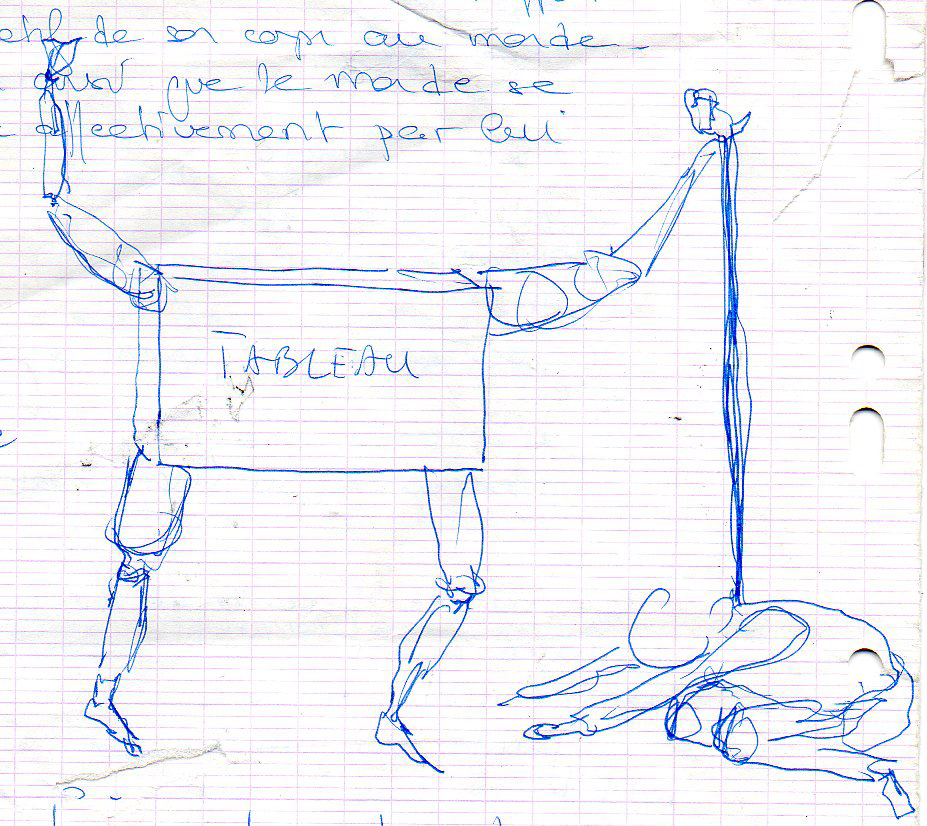 de son corps au monde.
ainsi que le monde se
effectivement par lui
TABLEAU